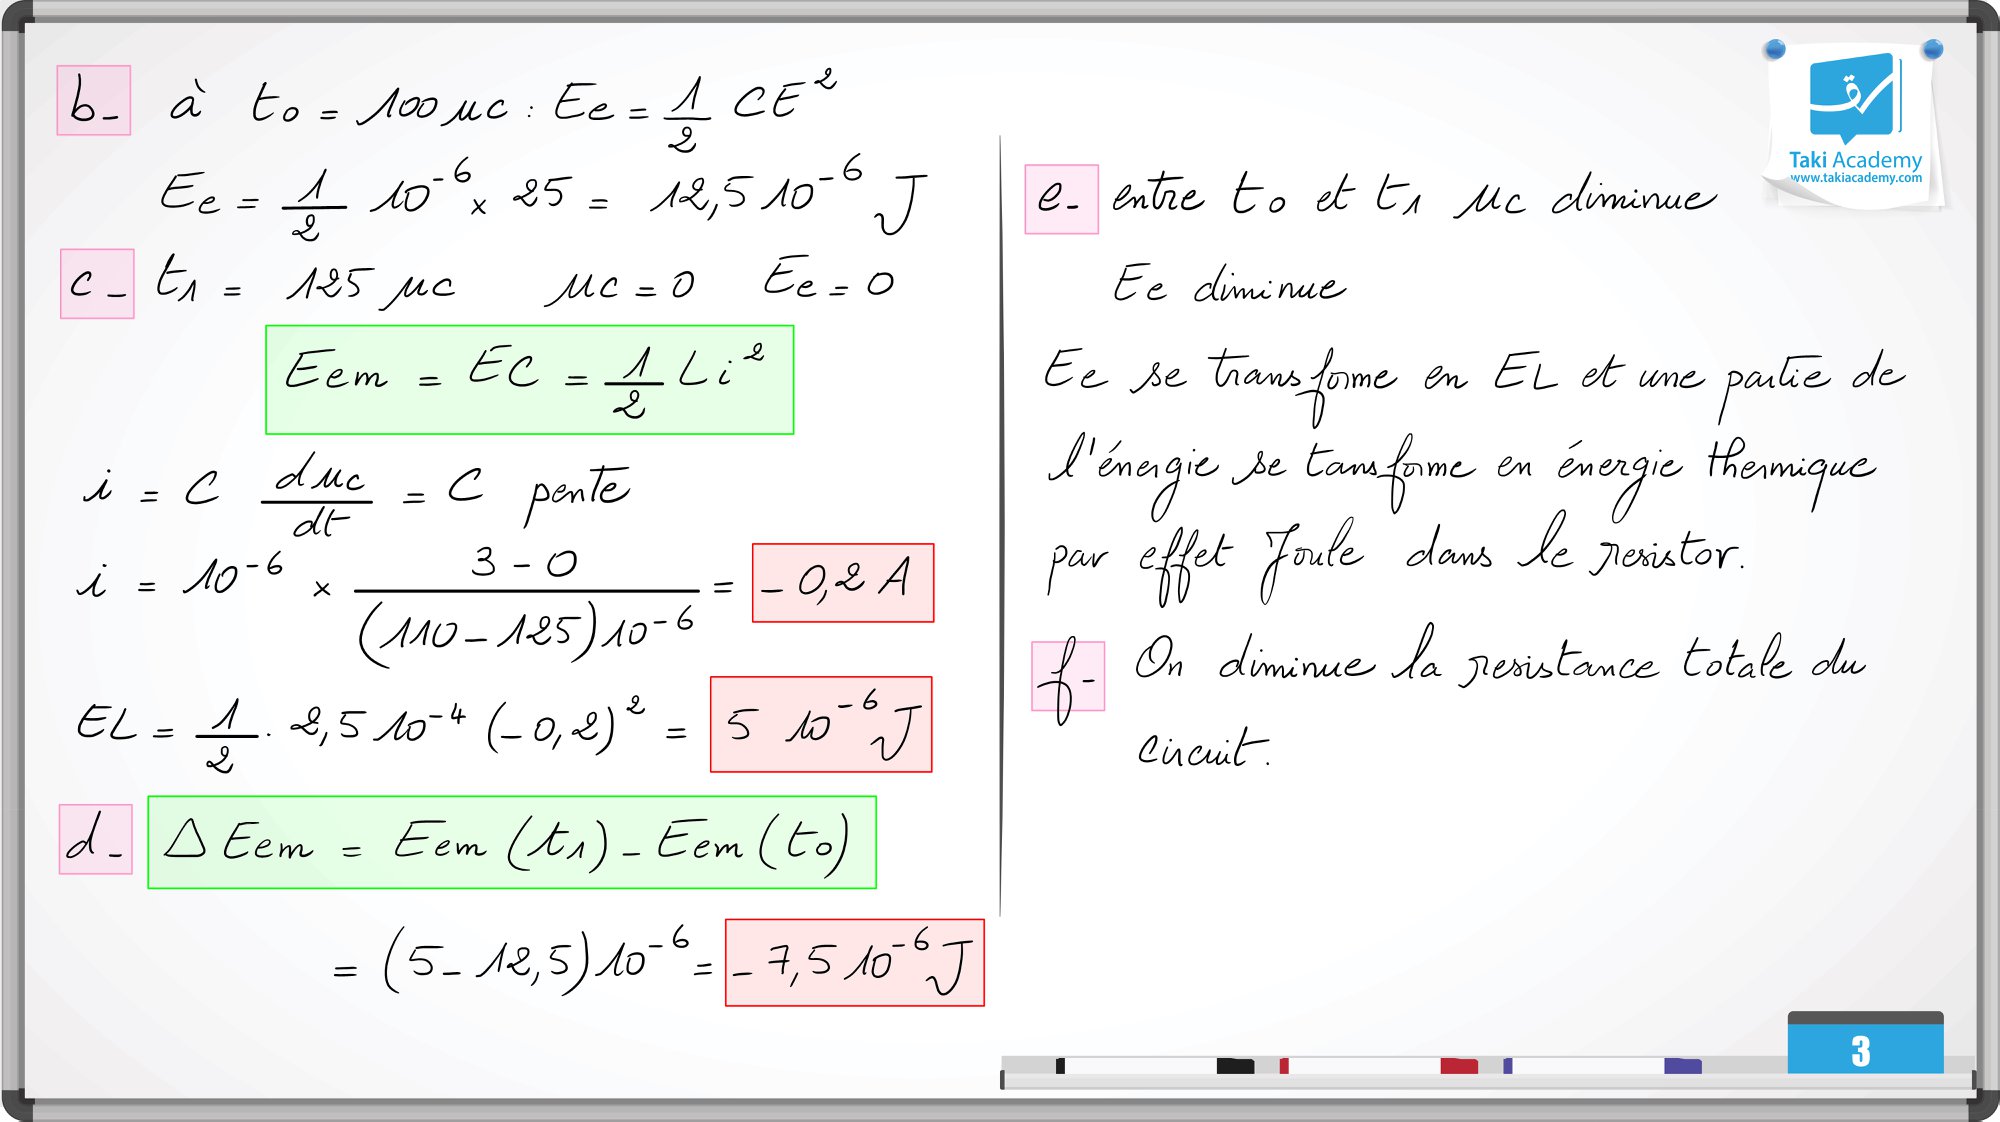 b- à t0 = 100 μc : Ee = 1/2 CE²
Ee = 1/2 10⁻⁶ × 25 = 12,5 10⁻⁶ J
c- t1 = 125 μc   μc = 0   Ee = 0
Eem = EC = 1/2 Li²
i = C dμc/dt = C pente
i = 10⁻⁶ × (3 - 0)/((110 - 125)10⁻⁶) = - 0,2 A
EL = 1/2 . 2,5 10⁻⁴ (-0,2)² = 5 10⁻⁶ J
d- Δ Eem = Eem (t1) - Eem (t0)
= (5 - 12,5) 10⁻⁶ = - 7,5 10⁻⁶ J
e- entre t0 et t1 μc diminue
Ee diminue
Ee se transforme en EL et une partie de
l'énergie se tansforme en énergie thermique
par effet Joule dans le resistor.
f- On diminue la resistance totale du
circuit.
Taki Academy
www.takiacademy.com
3